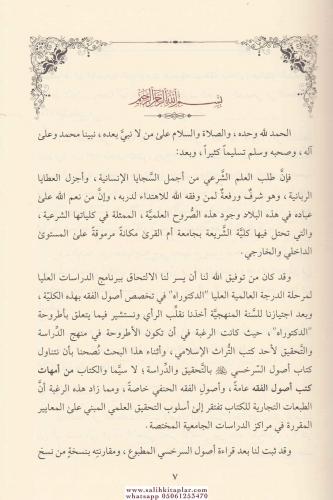 بسم الله الرحمن الرحيم
الحمد لله وحده، والصلاة والسلام على من لا نبيَّ بعده، نبينا محمد وعلى
آله، وصحبه وسلم تسليماً كثيراً، وبعد:
فإنَّ طلب العلم الشَّرعي من أجمل السَّجايا الإنسانية، وأجزل العطايا
الربانية، وهو شرفٌ ورفعةٌ لمن وفقه الله للاهتداء لدربه، وإنَّ من نعم الله على
عباده في هذه البلاد وجود هذه الصُّروح العلميَّة، الممثلة في كلياتها الشرعية،
والتي تحتل فيها كليَّة الشَّريعة بجامعة أم القرى مكانةً مرموقةً على المستوىٰ
الداخلي والخارجي.
وقد كان من توفيق الله لنا أن يسر لنا الالتحاق ببرنامج الدراسات العليا
لمرحلة الدرجة العالمية العليا "الدكتوراه" في تخصص أصول الفقه بهذه الكليّة،
وبعد اجتيازنا للسَّنة المنهجيَّة أخذنا نقلِّب الرأي ونستشير فيما يتعلق بأطروحة
"الدكتوراه"، حيث كانت الرغبة في أن تكون الأطروحة في منهج الدِّراسة
والتَّحقيق لأحد كتب التُّراث الإسلامي، وأثناء هذا البحث نُصحنا بأن نتناول
كتاب أصول السَّرخسي بالتَّحقيق والدِّراسة؛ لا سيَّما والكتاب من أمهات
كتب أصول الفقه عامةً، وأصول الفقه الحنفي خاصةً، ومما زاد هذه الرغبة أنَّ
الطبعات التجارية للكتاب تفتقر إلى أسلوب التحقيق العلمي المبني على المعايير
المقررة في مراكز الدراسات الجامعية المختصة.
وقد ثبت لنا بعد قراءة أصول السرخسي المطبوع، ومقارنته بنسخةٍ من نسخ
٧
www.salihkitaplar.com
whatsapp 05061253470